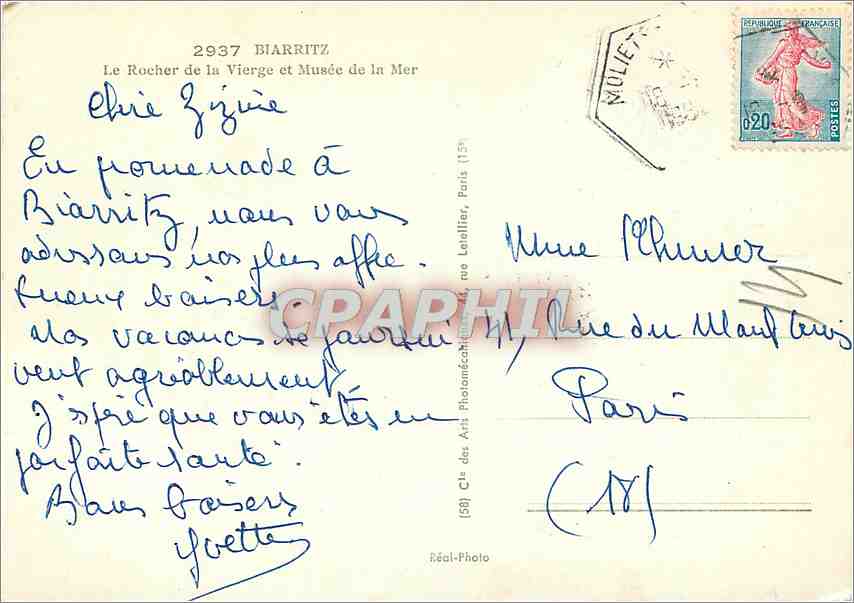 2937 BIARRITZ
Le Rocher de la Vierge et Musée de la Mer
Chère Zizine
En promenade à
Biarritz, nous vous
adressons nos plus affec-
tueux baisers.
Nos vacances se poursui
vent agréablement,
J'espère que vous êtes en
parfaite santé.
Bons baisers
Yvette
(58) Cie des Arts Photomécaniques, rue Letellier, Paris (15e)
Réal-Photo
MOLIETS
REPUBLIQUE FRANÇAISE
0,20
POSTES
Mme
Rue du Mont Cenis
Paris
(18)
CPARPHIL